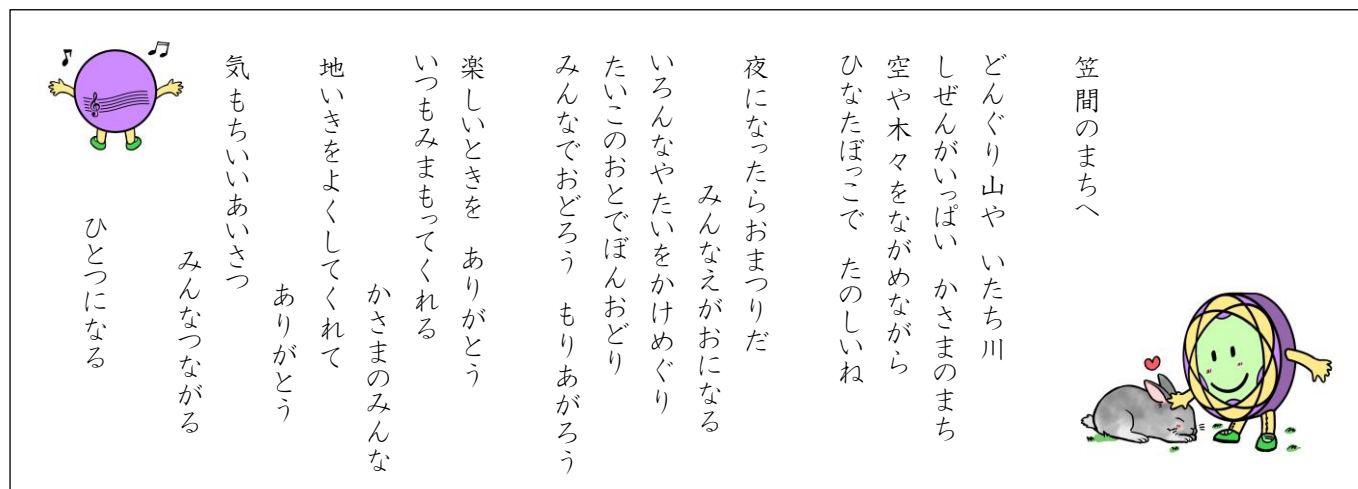 笠間のまちへ
どんぐり山や　いたち川
しぜんがいっぱい　かさまのまち
空や木々をながめながら
ひなたぼっこで　たのしいね
夜になったらおまつりだ
みんなえがおになる
いろんなやたいをかけめぐり
たいこのおとでぼんおどり
みんなでおどろう　もりあがろう
楽しいときを　ありがとう
いつもみまもってくれる
かさまのみんな
地いきをよくしてくれて
ありがとう
気もちいいあいさつ
みんなつながる
ひとつになる